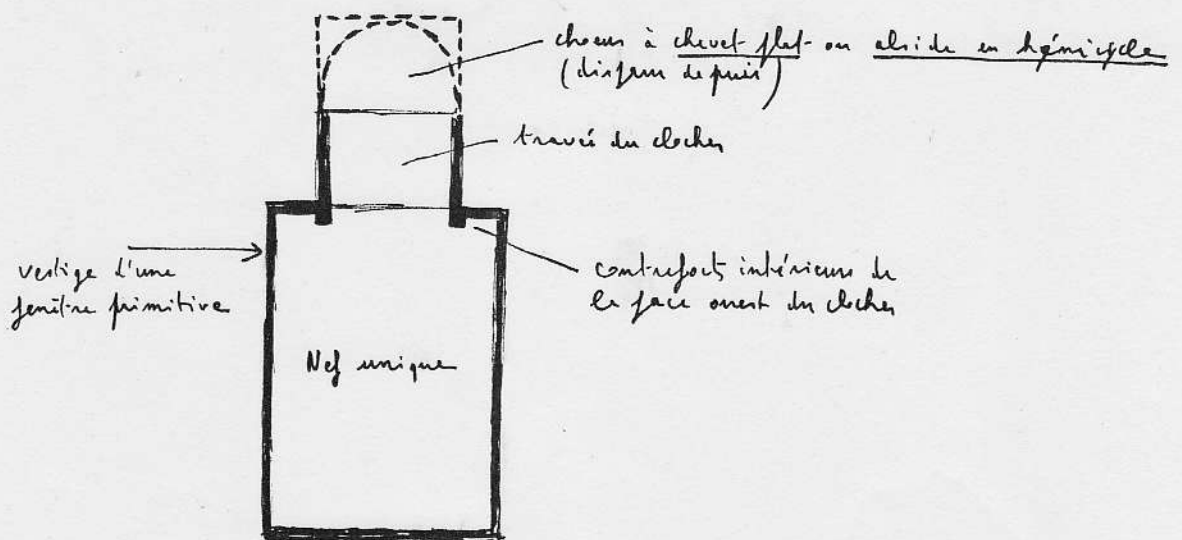 choeur à chevet plat ou abside en hémicycle
(disparu depuis)
travée du clocher
vestige d'une
fenêtre primitive
contreforts intérieurs de
la face ouest du clocher
Nef unique